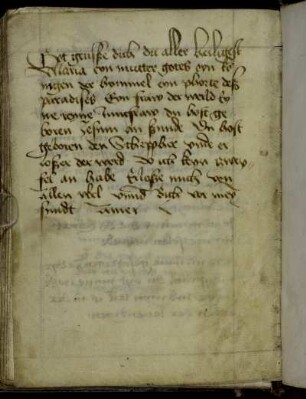 Got grusse dich du aller heiligest
Maria ein mutter gotes ein ko
nigen der hommel ein phorte deß
paradises Ein fraw der werld Ey
ne reyne Jungfraw du host ge
boren Jesum an sunde Du host
geboren den Schepper vnde er
loßer der werld Do ich keyn zwey
fel an habe Erloße mich von
allen vbel vnnd bith vor mey
sundt Amen